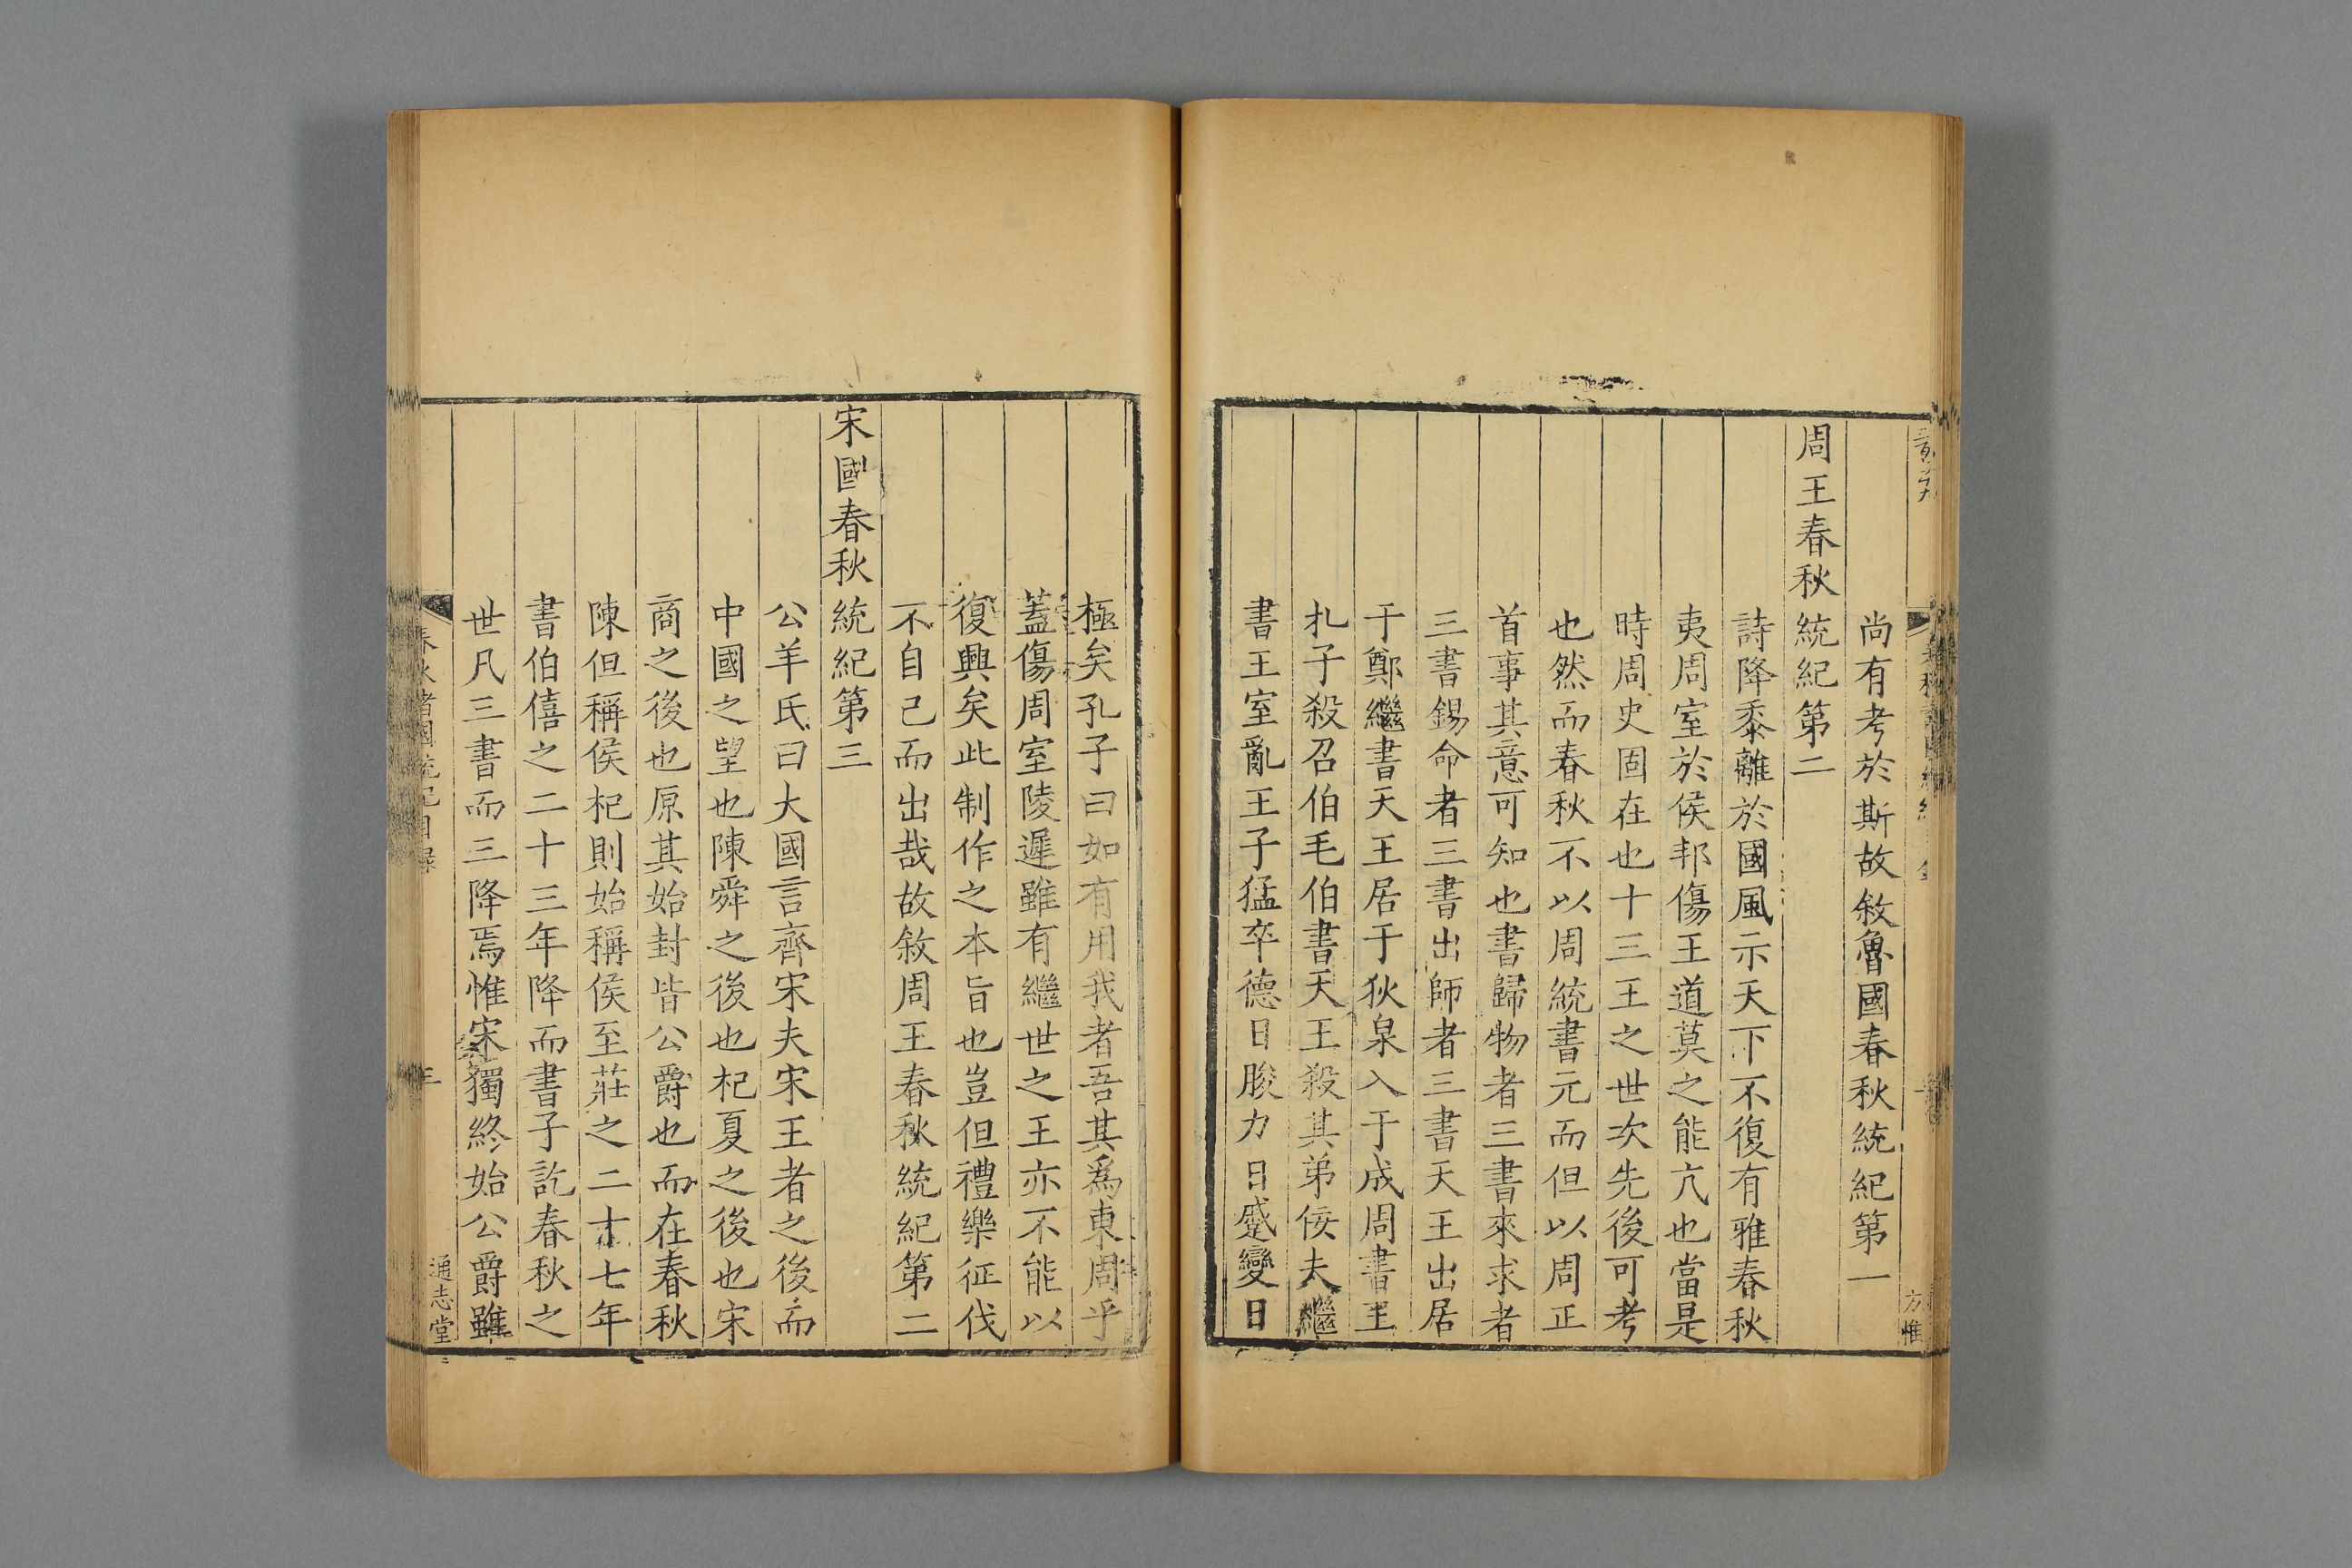 尚有考於斯故敘魯國春秋統紀第一
周王春秋統紀第二
詩降黍離於國風示天下不復有雅春秋
夷周室於侯邦傷王道莫之能亢也當是
時周史固在也十三王之世次先後可考
也然而春秋不以周統書元而但以周正
首事其意可知也書歸物者三書來求者
三書錫命者三書出師者三書天王出居
于鄭繼書天王居于狄泉入于成周書王
札子殺召伯毛伯書天王殺其弟佞夫繼
書王室亂王子猛卒德日朘力日蹙變日
極矣孔子曰如有用我者吾其爲東周乎
蓋傷周室陵遲雖有繼世之王亦不能以
復興矣此制作之本旨也豈但禮樂征伐
不自己而出哉故敘周王春秋統紀第二
宋國春秋統紀第三
公羊氏曰大國言齊宋夫宋王者之後而
中國之望也陳舜之後也杞夏之後也宋
商之後也原其始封皆公爵也而在春秋
陳但稱侯杞則始稱侯至莊之二十七年
書伯僖之二十三年降而書子訖春秋之
世凡三書而三降焉惟宋獨終始公爵雖
春秋諸國統紀目錄
通志堂